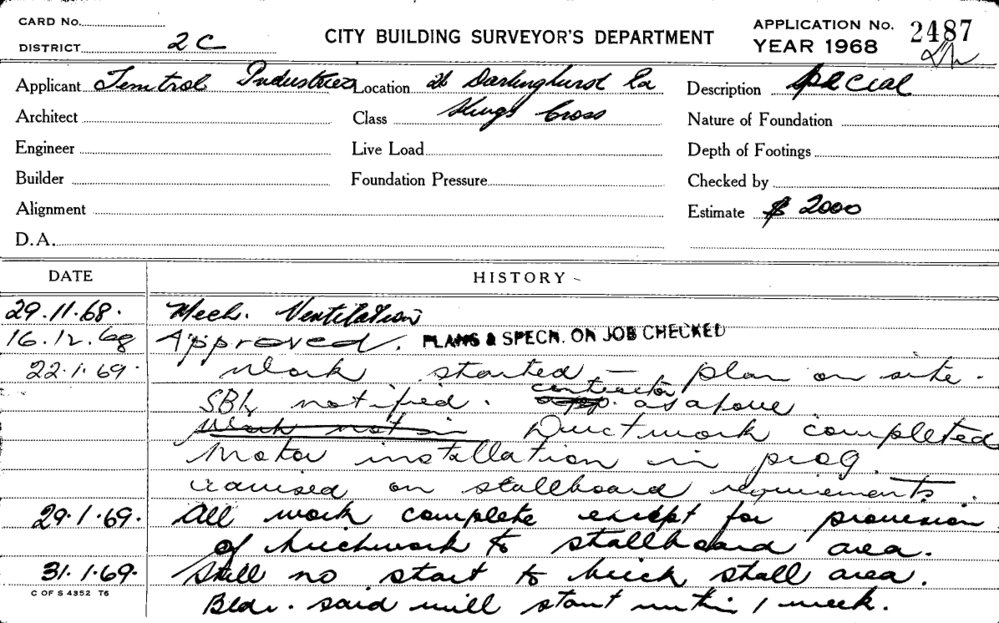 CARD No.
DISTRICT 2C
CITY BUILDING SURVEYOR'S DEPARTMENT
APPLICATION No. 2487
YEAR 1968
Applicant Temtrol Industries Location 26 Darlinghurst Rd Description special
Architect Class Kings Cross Nature of Foundation
Engineer Live Load Depth of Footings
Builder Foundation Pressure Checked by
Alignment Estimate $ 2000
D.A.
DATE HISTORY
29.11.68. Mech. Ventilation
16.12.68 Approved. PLANS & SPECN. ON JOB CHECKED
22.1.69. Work started – plan on site.
SBI, notified. contractor as above
Work not in Ductwork completed
Motor installation in prog.
on stallboard requirements.
29.1.69. All work complete except for provision
of brickwork to stallboard area.
31.1.69. Still no start to brick stall area.
Bldr. said will start within 1 week.
C OF S 4352 T6